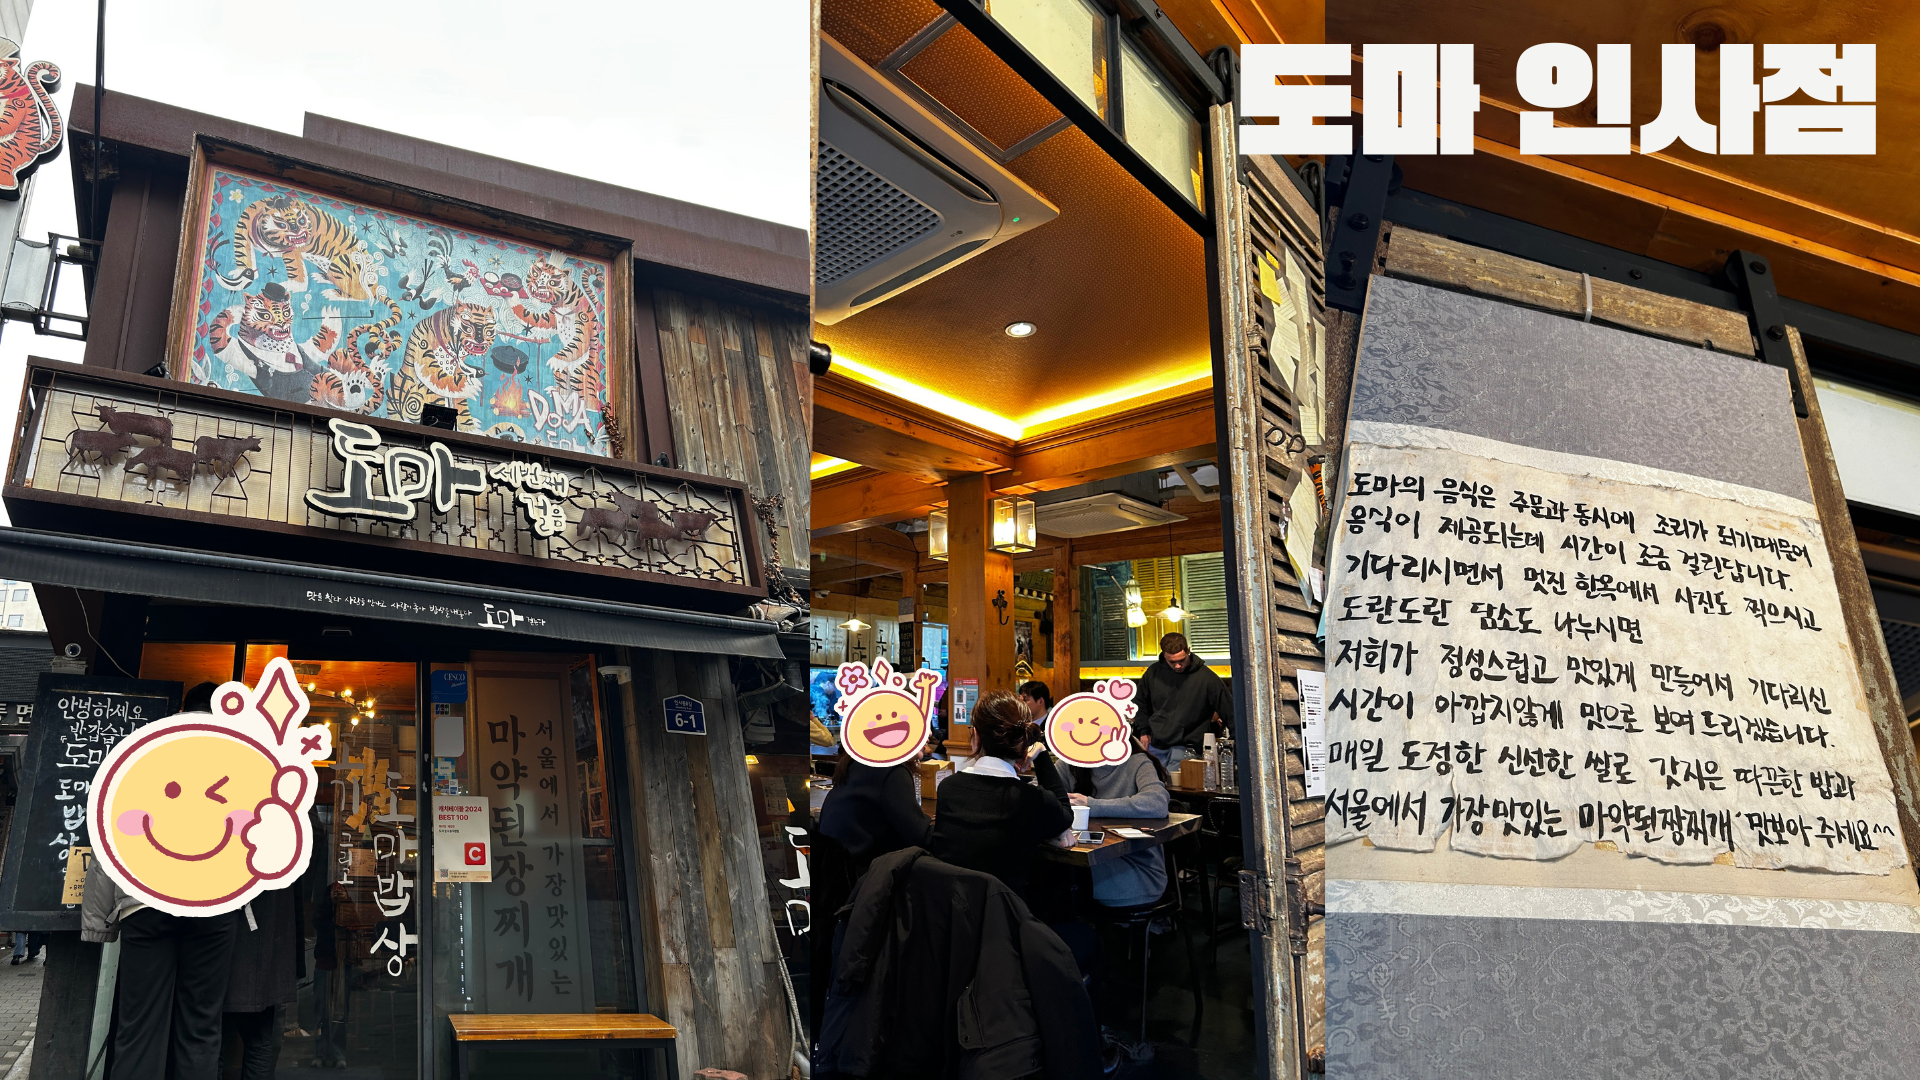 도마 인사점
DOMA
도마 세번째
걸음
맛을 찾다 사람을 만나고 사람이 좋아 밥상을 내놓다 도마
안녕하세요
반갑습니
도마
도마
밥
상
그리고
도마밥상
CESCO
캐치테이블 2024
BEST 100
서울에서 가장 맛있는
마약된장찌개
6-1
도마의 음식은 주문과 동시에 조리가 되기때문에
음식이 제공되는데 시간이 조금 걸린답니다.
기다리시면서 멋진 한옥에서 사진도 찍으시고
도란도란 담소도 나누시면
저희가 정성스럽고 맛있게 만들어서 기다리신
시간이 아깝지않게 맛으로 보여드리겠습니다.
매일 도정한 신선한 쌀로 갓지은 따끈한 밥과
서울에서 가장맛있는 마약된장찌개 맛보아주세요^^